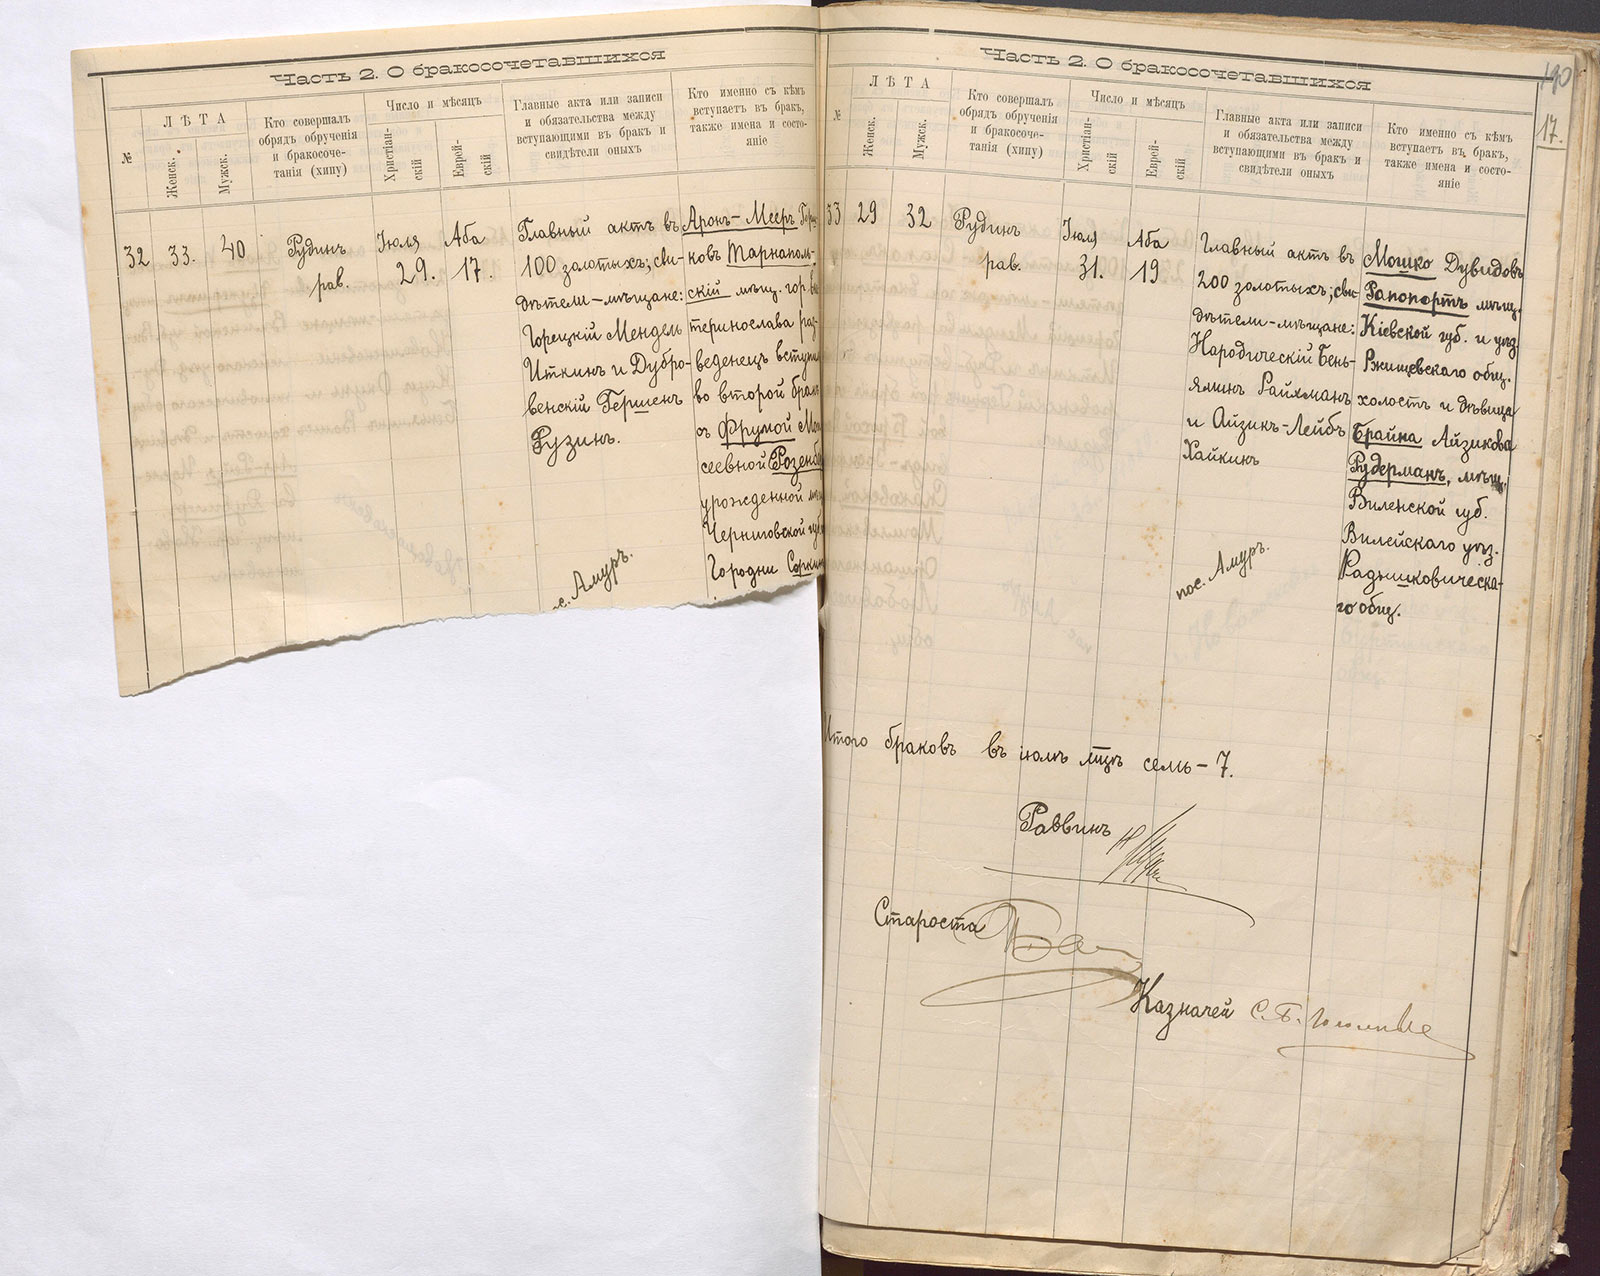 Часть 2. О бракосочетавшихся
№
ЛѢТА
Женск.
Мужск.
Кто совершалъ
обрядъ обрученія
и бракосоче-
танія (хипу)
Число и мѣсяцъ
Христіан-
скій
Еврей-
скій
Главные акта или записи
и обязательства между
вступающими въ бракъ и
свидѣтели оныхъ
Кто именно съ кѣмъ
вступаетъ въ бракъ,
также имена и состо-
яніе
32
33.
40
Рудинъ
рав.
Іюля
29.
Аба
17.
Главный актъ въ
100 золотыхъ; сви-
дѣтели-мѣщане:
Горецкій Мендель
Иткинъ и Дубро-
венскій Гершенъ
Рузинъ.
пос. Амуръ.
Аронъ-Мееръ
ковъ Тарнаполь-
скій мѣщ. гор.
теринослава раз-
веденецъ вступи
во второй бракъ
съ Фрумой Мои
сеевной Розенб
урожденной
Черниговской губ
Городни Соркин
Часть 2. О бракосочетавшихся
190
17.
№
ЛѢТА
Женск.
Мужск.
Кто совершалъ
обрядъ обрученія
и бракосоче-
танія (хипу)
Число и мѣсяцъ
Христіан-
скій
Еврей-
скій
Главные акта или записи
и обязательства между
вступающими въ бракъ и
свидѣтели оныхъ
Кто именно съ кѣмъ
вступаетъ въ бракъ,
также имена и состо-
яніе
33
29
32
Рудинъ
рав.
Іюля
31.
Аба
19
Главный актъ въ
200 золотыхъ; сви-
дѣтели-мѣщане:
Народическій Бень-
яминъ Райхманъ
и Айзикъ-Лейбъ
Хайкинъ
пос. Амуръ.
Мошко Дувидовъ
Рапопортъ мѣщ.
Кіевской губ. и уѣз.
Ржищевскаго общ.
холостъ и дѣвица
Брайна Айзикова
Рудерманъ, мѣщ.
Виленской губ.
Вилейскаго уѣз.
Радушковическа-
го общ.
Итого браковъ въ іюлѣ мцѣ семь-7.
Раввинъ
Староста
Казначей С. Б.